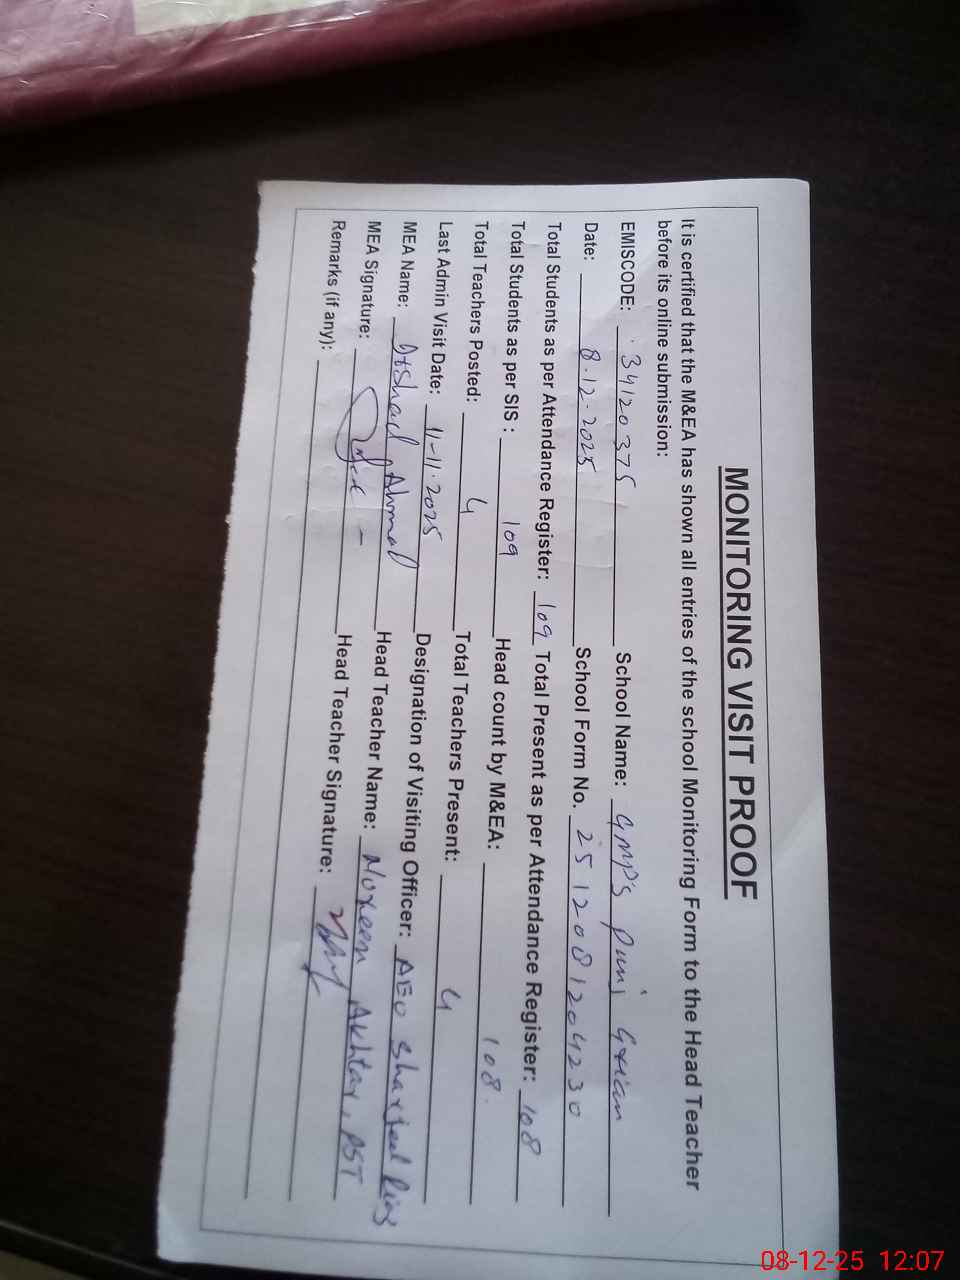 MONITORING VISIT PROOF
It is certified that the M&EA has shown all entries of the school Monitoring Form to the Head Teacher
before its online submission:
EMISCODE: 34120375 School Name: GMPS Punj Grian
Date: 8.12.2025 School Form No. 2512081204230
Total Students as per Attendance Register: 109 Total Present as per Attendance Register: 108
Total Students as per SIS : 109 Head count by M&EA: 108
Total Teachers Posted: 4 Total Teachers Present: 4
Last Admin Visit Date: 11-11-2025 Designation of Visiting Officer: AEO Sharjeel Riaz
MEA Name: Irshad Ahmad Head Teacher Name: Noreen Akhtar, PST
MEA Signature: Head Teacher Signature:
Remarks (if any):
08-12-25 12:07